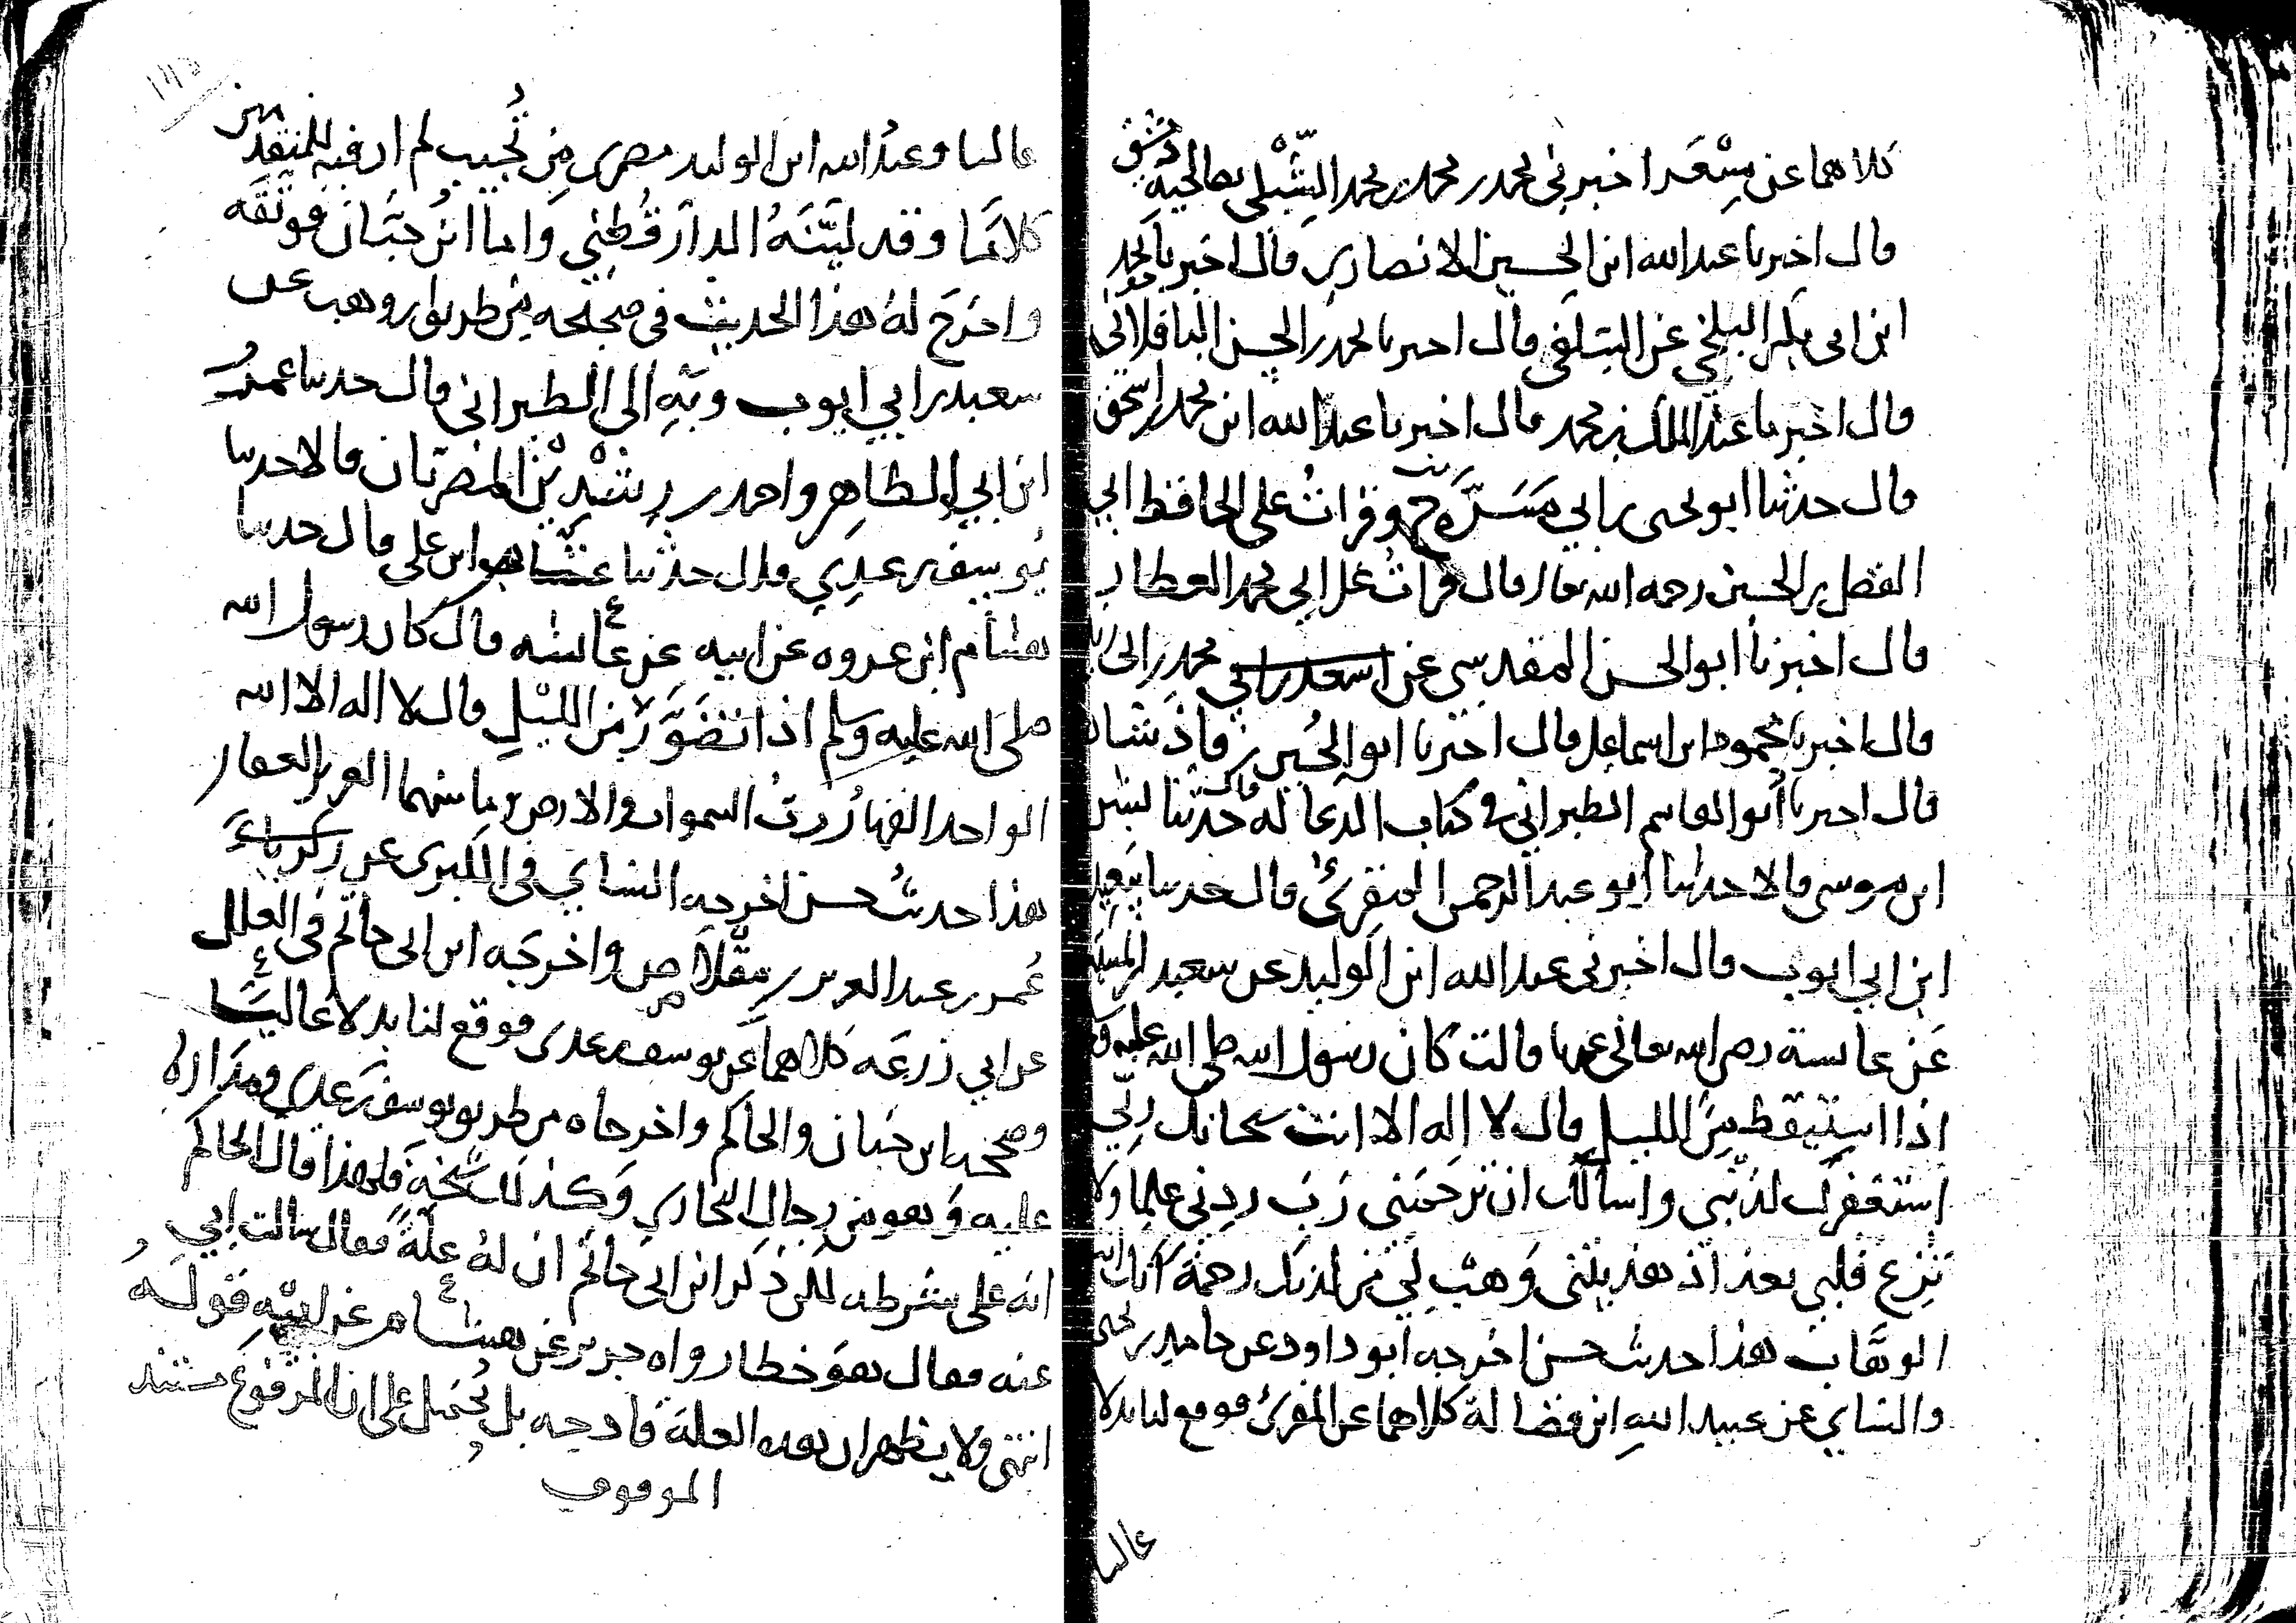 كلاهما عن مسعر اخبرني محمد بن محمد بن محمد الشبلي بصالحية دمشق
قال اخبرنا عبد الله ابن الحسين الانصاري قال اخبرنا محمد
ابن ابي بكر البلخي عن السلفي قال اخبرنا محمد بن الحسن الباقلاني
قال اخبرنا عبد الملك بن محمد قال اخبرنا عبد الله ابن محمد بن اسحق
قال حدثنا ابو يحيى بن ابي مسرة ح وقرات على الحافظ ابي
الفضل بن الحسين رحمه الله تعالى قال قرات على ابي محمد العطار
قال اخبرنا ابو الحسن المقدسي عن اسعد بن ابي محمد بن ابي
قال اخبرنا محمود ابن اسماعيل قال اخبرنا ابو الحسين بن فاذشاه
قال اخبرنا ابو القاسم الطبراني في كتاب الدعا له قال حدثنا بشر
ابن موسى قالا حدثنا ابو عبد الرحمن المقرئ قال حدثنا سعيد
ابن ابي ايوب قال اخبرني عبد الله ابن الوليد عن سعيد بن المسيب
عن عايشة رضي الله تعالى عنها قالت كان رسول الله صلى الله عليه وسلم
اذا استيقظ من الليل قال لا اله الا انت سبحانك ربي
استغفرك لذنبي واسالك ان ترحمني رب زدني علما ولا
تزغ قلبي بعد اذ هديتني وهب لي من لدنك رحمة انك انت
الوهاب هذا حديث حسن اخرجه ابو داود عن حامد بن يحيى
والنساي عن عبيد الله ابن فضالة كلاهما عن المقرئ فوقع لنا بدلا
عاليا
عاليا وعبد الله ابن الوليد مصري من تجيب لم ار فيه للمتقدمين
كلاما وقد لينه الدارقطني واما ابن حبان فوثقه
واخرج له هذا الحديث في صحيحه من طريق ابن وهب عن
سعيد بن ابي ايوب وبه الى الطبراني قال حدثنا عمرو
ابن ابي الطاهر واحمد بن رشدين المصريان قالا حدثنا
يوسف بن عدي قال حدثنا عثام هو ابن علي قال حدثنا
هشام ابن عروه عن ابيه عن عائشه قال كان رسول الله
صلى الله عليه وسلم اذا تضور من الليل قال لا اله الا الله
الواحد القهار رب السموات والارض وما بينهما العزيز الغفار
هذا حديث حسن اخرجه النساي في الكبرى عن زكرياء
عمر بن عبد العزيز بن مقلاص واخرجه ابن ابي حاتم في العلل
عن ابي زرعه كلاهما عن يوسف بن عدي فوقع لنا بدلا عاليا
وصححه ابن حبان والحاكم واخرجاه من طريق يوسف بن عدي ومداره
عليه وهو من رجال البخاري وكذلك شيخه فلهذا قال الحاكم
انه على شرطه لكن ذكر ابن ابي حاتم ان له علة فقال سالت ابي
عنه فقال هو خطا رواه جرير عن هشام عن ابيه قوله
انتهى ولا يظهر ان هذه العلة قادحه بل يحتمل على ان المرفوع مستند
الموقوف